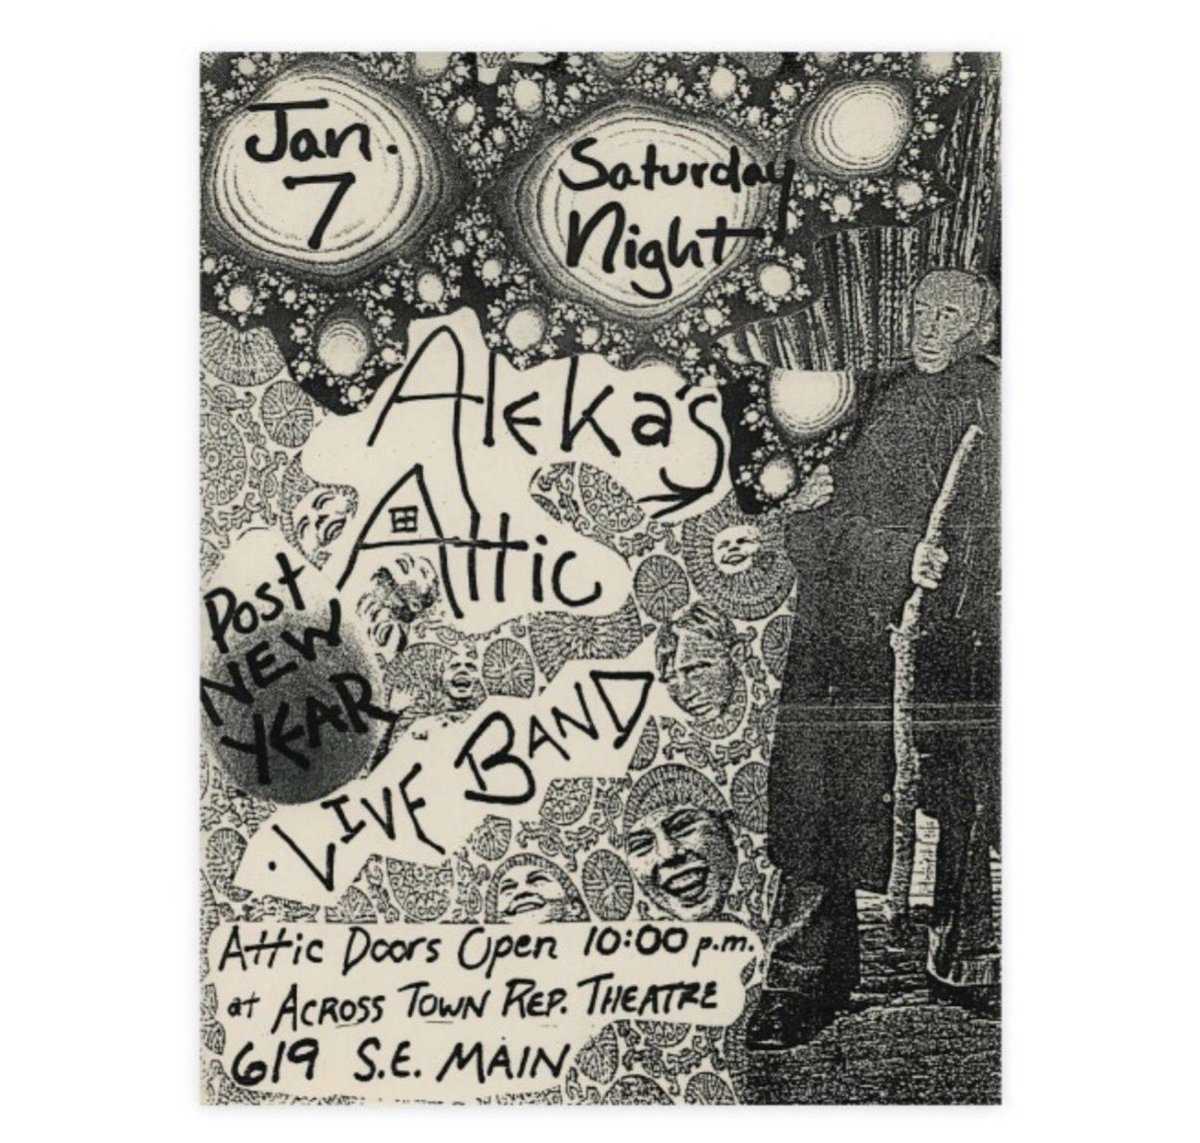 Jan.
7
Saturday
Night
Aleka's
Attic
Post
NEW
YEAR
. LIVE BAND
Attic Doors Open 10:00 p.m.
at ACROSS TOWN REP. THEATRE
619 S.E. MAIN